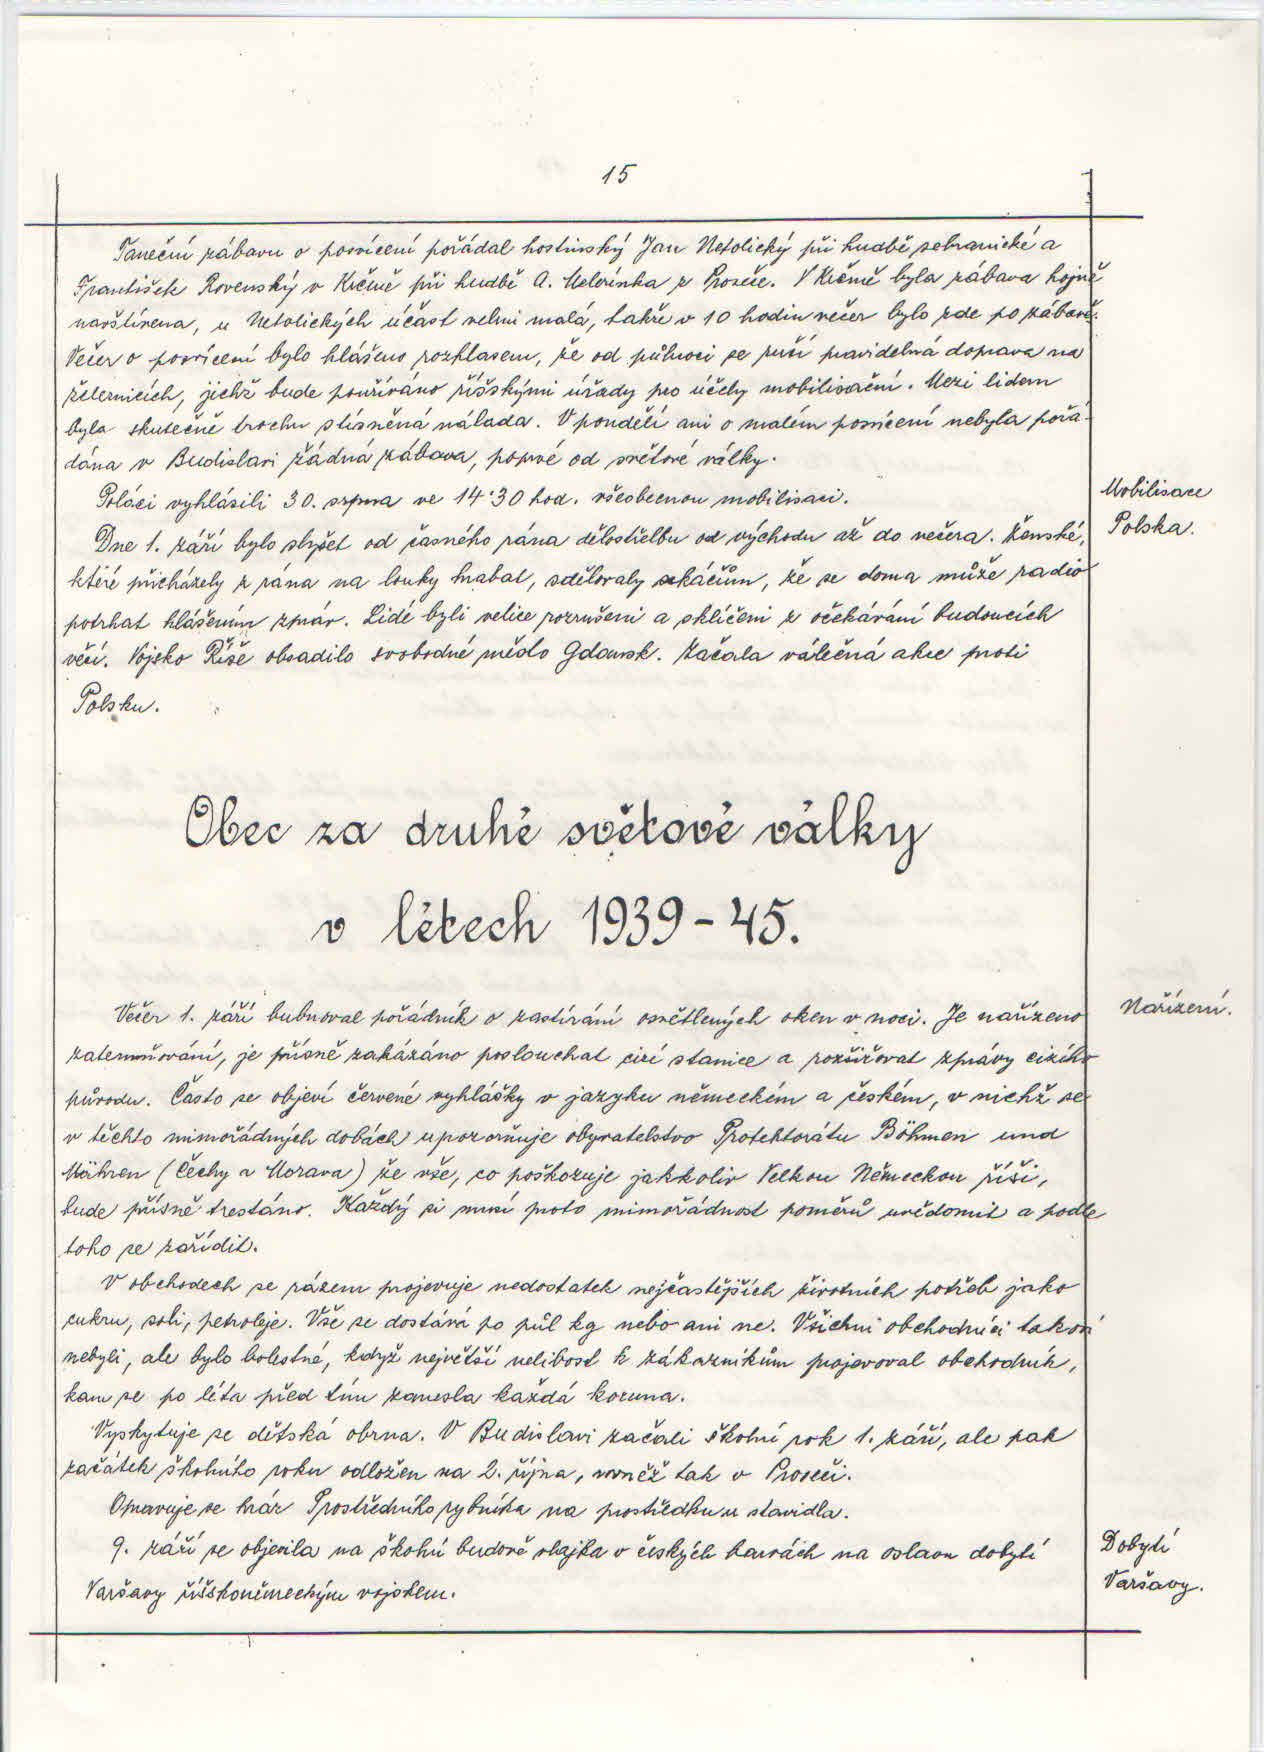 15
Taneční zábavu o posvícení pořádal hostinský Jan Netolický při hudbě sebranické a
František Rovenský v Krčmě při hudbě A. Melezínka z Proseče. V Krčmě byla zábava hojně
navštívena, u Netolických účast velmi malá, takže v 10 hodin večer bylo zde po zábavě.
Večer o posvícení bylo hlášeno rozhlasem, že od půlnoci se ruší pravidelná doprava na
železnicích, jichž bude používáno říšskými úřady pro účely mobilisační. Mezi lidem
byla skutečně trochu stísněná nálada. V pondělí ani o malém posvícení nebyla pořá-
dána v Budislavi žádná zábava, poprvé od světové války.
Poláci vyhlásili 30. srpna ve 14˙30 hod. všeobecnou mobilisaci.
Mobilisace
Polska.
Dne 1. září bylo slyšet od časného rána dělostřelbu od východu až do večera. Ženské,
které přicházely z rána na louky hrabat, sdělovaly sekáčům, že se doma může radio
potrhat hlášením zpráv. Lidé byli velice rozrušeni a sklíčeni z očekávání budoucích
věcí. Vojsko Říše obsadilo svobodné město Gdansk. Začala válečná akce proti
Polsku.
Obec za druhé světové války
v létech 1939 - 45.
Večer 1. září bubnoval pořádník o zastírání osvětlených oken v noci. Je nařízeno
Nařízení.
zatemňování, je přísně zakázáno poslouchat cizí stanice a rozšiřovat zprávy cizího
původu. Často se objeví červené vyhlášky v jazyku německém a českém, v nichž se
v těchto mimořádných dobách upozorňuje obyvatelstvo Protektorátu Böhmen und
Mähren (Čechy a Morava) že vše, co poškozuje jakkoliv Velkou Německou říši,
bude přísně trestáno. Každý si musí proto mimořádnost poměrů uvědomit a podle
toho se zařídit.
V obchodech se rázem projevuje nedostatek nejčastějších životních potřeb jako
cukru, soli, petroleje. Vše se dostává po půl kg nebo ani ne. Všichni obchodníci takoví
nebyli, ale bylo bolestné, když největší nelibost k zákazníkům projevoval obchodník,
kam se po léta před tím zanesla každá koruna.
Vyskytuje se dětská obrna. V Budislavi začali školní rok 1. září, ale pak
začátek školního roku odložen na 2. října, rovněž tak v Proseči.
Opravuje se hráz Prostředního rybníka na prostředku u stavidla.
9. září se objevila na školní budově vlajka v českých barvách na oslavu dobytí
Varšavy říšskoněmeckým vojskem.
Dobytí
Varšavy.